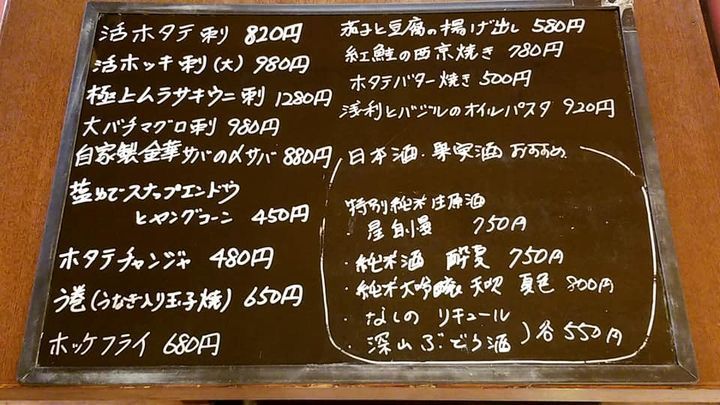 活ホタテ刺 820円
活ホッキ刺(大) 980円
極上ムラサキウニ刺 1280円
大バチマグロ刺 980円
自家製金華サバの〆サバ 880円
塩ゆでスナップエンドウ
とヤングコーン 450円
ホタテチャンジャ 480円
う巻(うなぎ入り玉子焼) 650円
ホッケフライ 680円
茄子と豆腐の揚げ出し 580円
紅鮭の西京焼き 780円
ホタテバター焼き 500円
浅利とバジルのオイルパスタ 920円
日本酒・果実酒 おすすめ
特別純米生原酒
星自慢 750円
・純米酒 酔夏 750円
・純米大吟醸 天吹 夏色 800円
・なしの リキュール
・深山ぶどう酒 )各550円